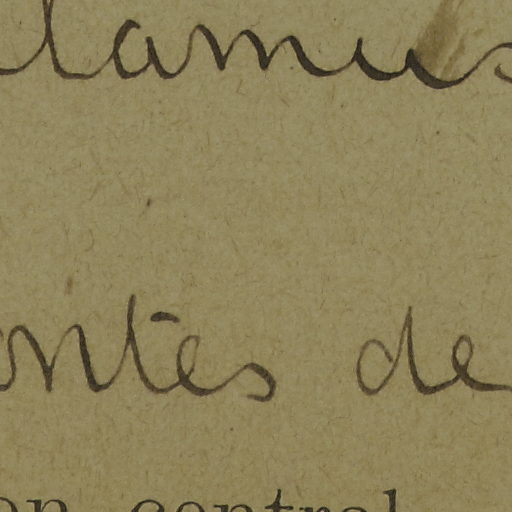 lamus
ontes de
on central